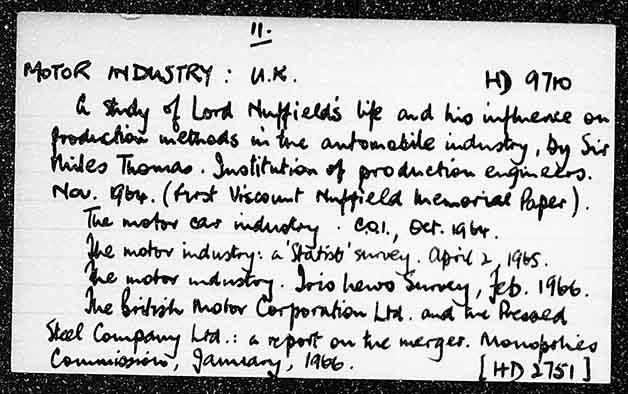 11.
MOTOR INDUSTRY: U.K. HD 9710
A study of Lord Nuffield's life and his influence on
production methods in the automobile industry, by Sir
Miles Thomas. Institution of production engineers.
Nov. 1964. (First Viscount Nuffield Memorial Paper).
The motor car industry. C.O.I., Oct. 1964.
The motor industry: a 'Statist' survey. April 2, 1965.
The motor industry. Iris News Survey, Feb. 1966.
The British Motor Corporation Ltd. and the Pressed
Steel Company Ltd.: a report on the merger. Monopolies
Commission, January, 1966. [HD 2751]